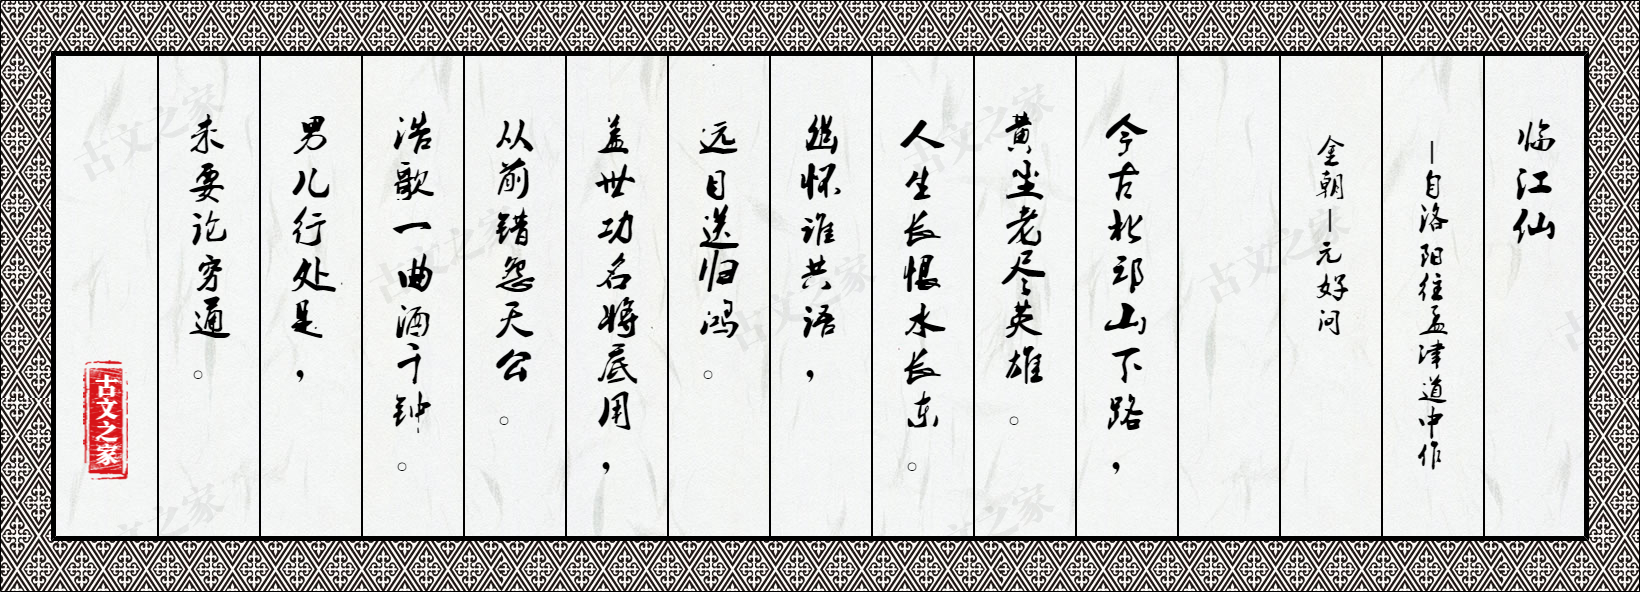 临江仙
—自洛阳往孟津道中作
金朝—元好问
今古北邙山下路，
黄尘老尽英雄。
人生长恨水长东。
幽怀谁共语，
远目送归鸿。
盖世功名将底用，
从前错怨天公。
浩歌一曲酒千钟。
男儿行处是，
未要论穷通。
古文之家